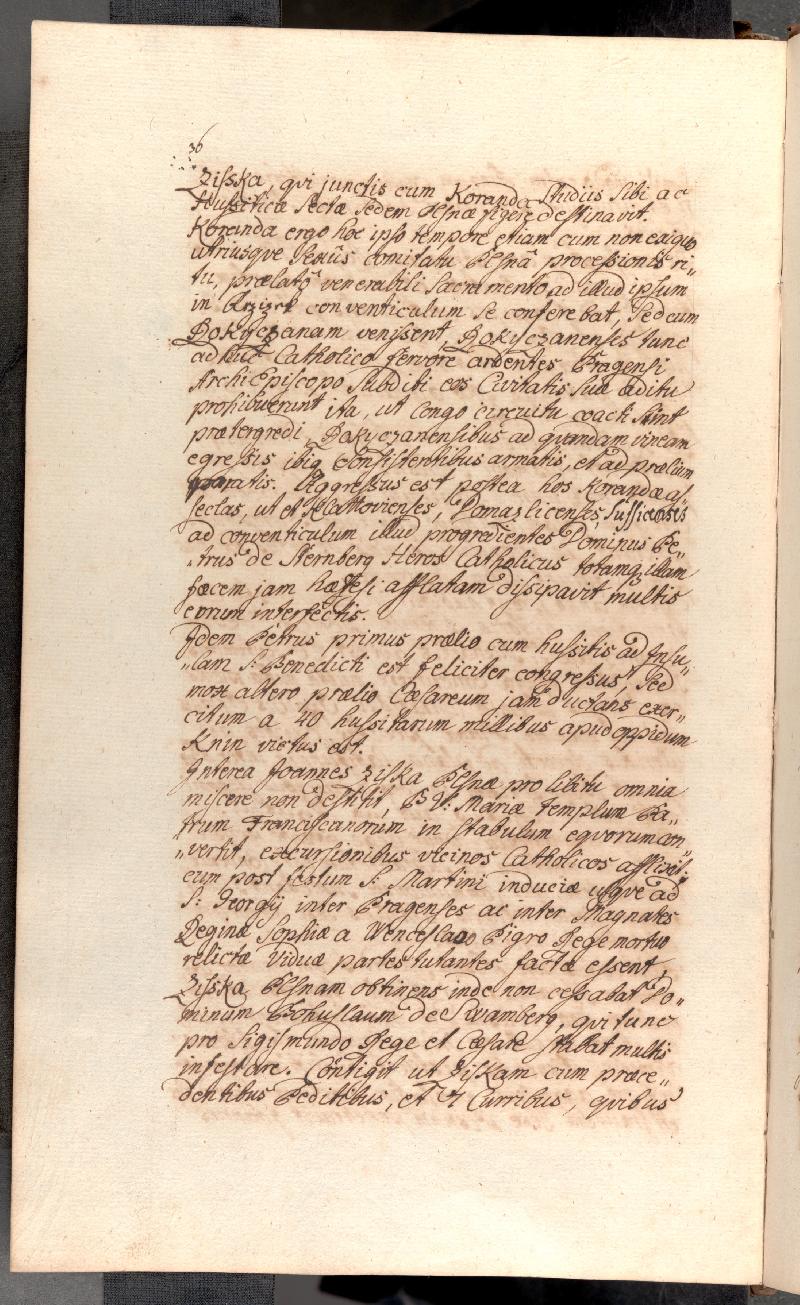 36
Zisska, qvi junctis cum Koranda Studiis Sibi ac
Hussiticæ Sectæ Sedem Pelsnæ figere destinavit.
Koranda ergo hoc ipso tempore etiam cum non exiguo
utriusque Sexûs comitatu Pelsnâ processionis ri„
tu, prælatô venerabili Sacramento ad illud ipsum
in conventiculum Se conferebat, Sed cum
Rokyczanam venissent, Rokyczanenses tunc
adhuc Catholico fervore ardentes Pragensi
Archi Episcopo Subditi eos Civitatis Suæ aditu
prohibuerunt ita, ut longo circuitu coacti Sint
prætergredi, Rokyczanensibus ad qvandam vineam
egressis ibiq consistentibus armatis, et ad prælium
paratis. Aggressus est postea hos Korandæ as„
seclas, ut et Klattovienses, Domazlicenses, Sussicenses
ad conventiculum illud progredientes Dominus Pe„
„trus de Sternberg Heros Catholicus totamq illam
fæcem jam hæresi afflatam dissipavit multis
eorum interfectis.
Idem Petrus primus prælio cum hussitis ad Insu„
„lam S. Benedicti est feliciter congressus, Sed
mox altero prælio Cæsareum jam ductans exer„
citum a 40 hussitarum millibus apud oppidum
Knin victus est.
Interea Joannes Ziska Pelsnæ pro libitu omnia
miscere non destitit, B.V. Mariæ Templum Pa„
trum Franciscanorum in stabulum eqvorum con„
„vertit, excursionibus vicinos Catholicos afflixit:
cum post festum S. Martini induciæ usqve ad
S. Georgij inter Pragenses ac inter Magnates
Reginæ Sophiæ a Wenceslao Pigro Rege mortuo
relictæ Viduæ partes tutantes factæ essent,
Zisska Pelsnam obtinens inde non cessabat Do„
minum Bohuslaum de Swamberg, qvi tunc
pro Sigismundo Rege et Cæsare stabat multis
infestare. Contigit ut Ziskam cum præce„
dentibus Peditibus, et 7 Curribus, qvibus